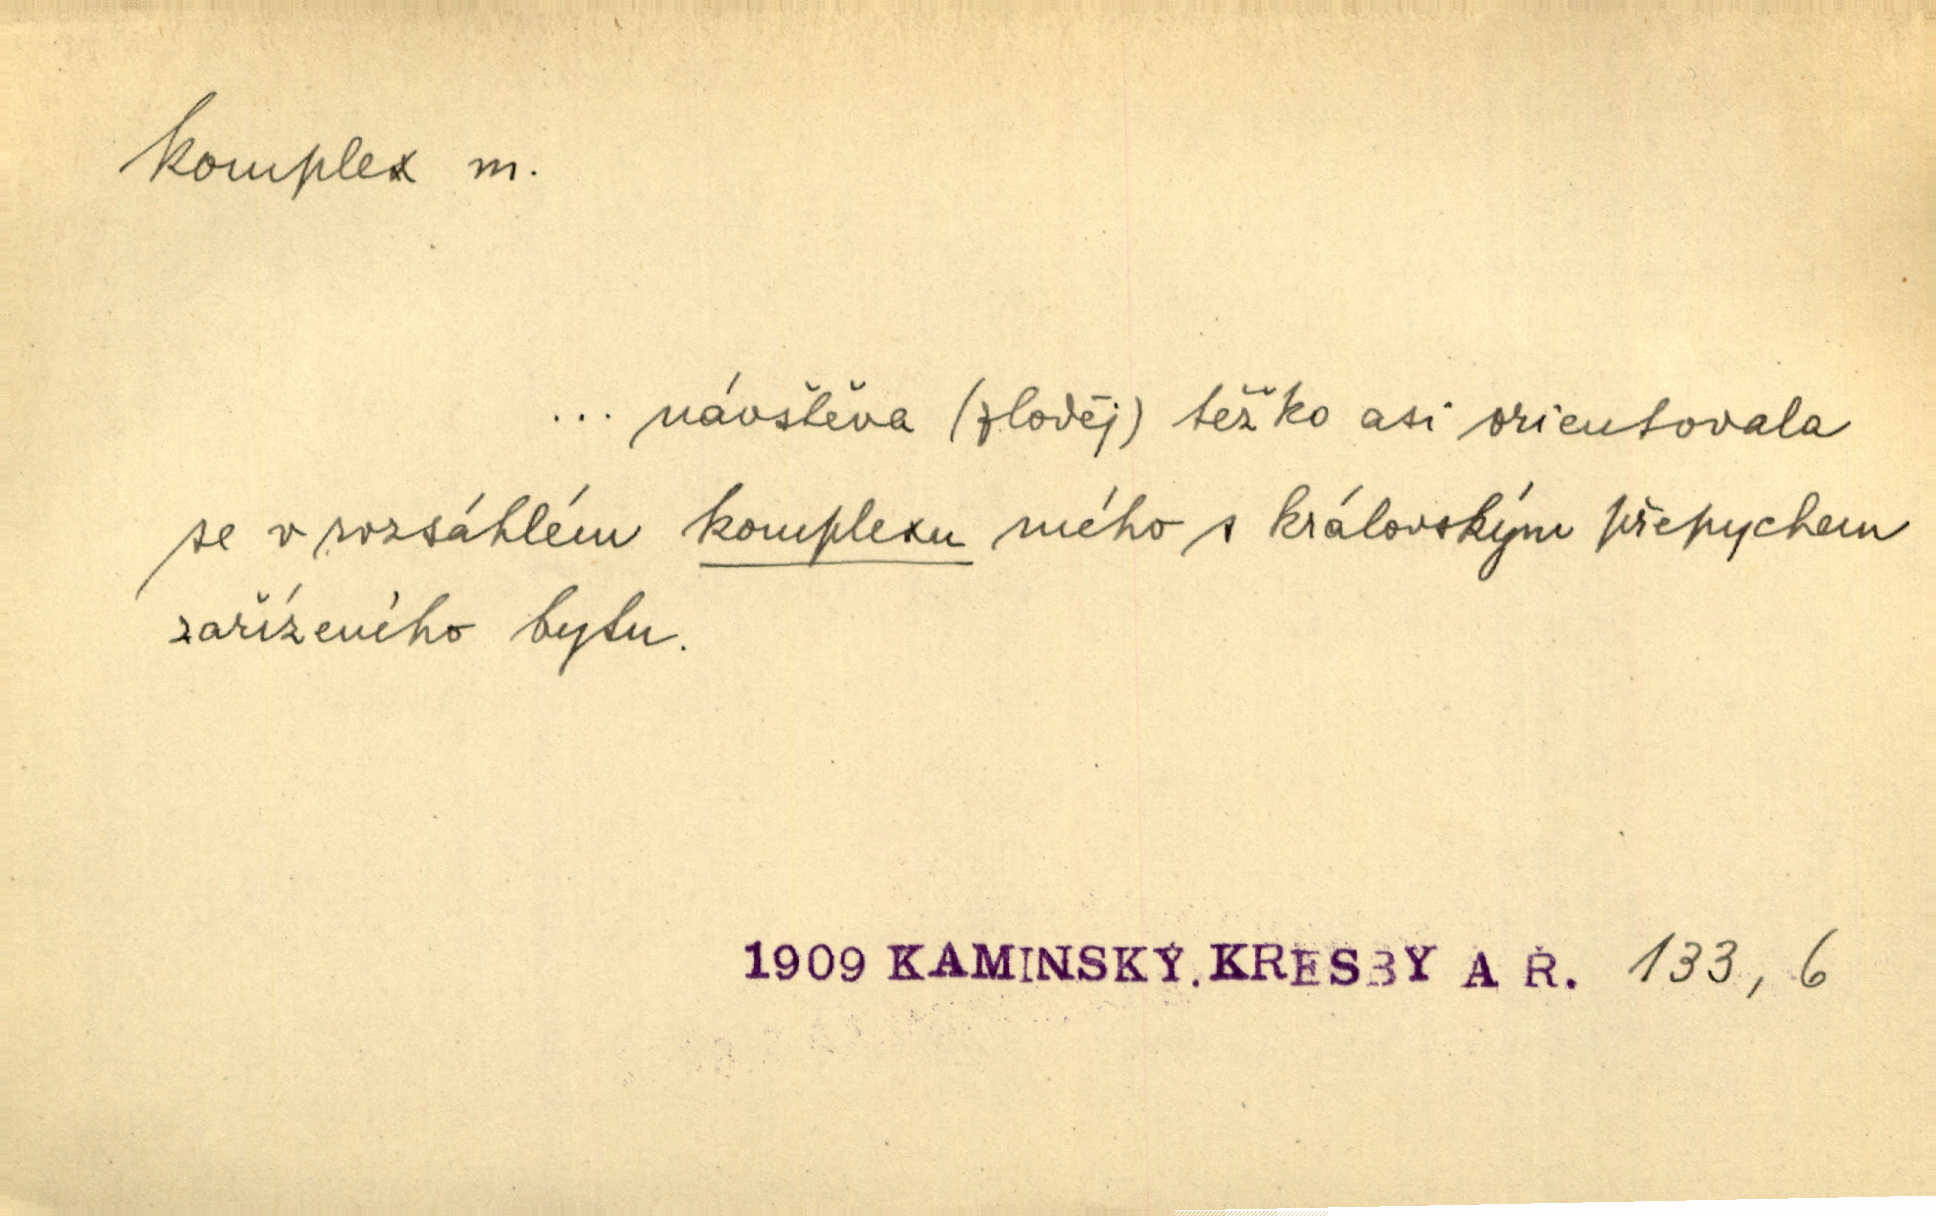 komplex m.
... návštěva (zloděj) těžko asi orientovala
se v rozsáhlém komplexu mého s královským přepychem
zařízeného bytu.
1909 KAMINSKÝ. KRESBY A Ř. 133, 6